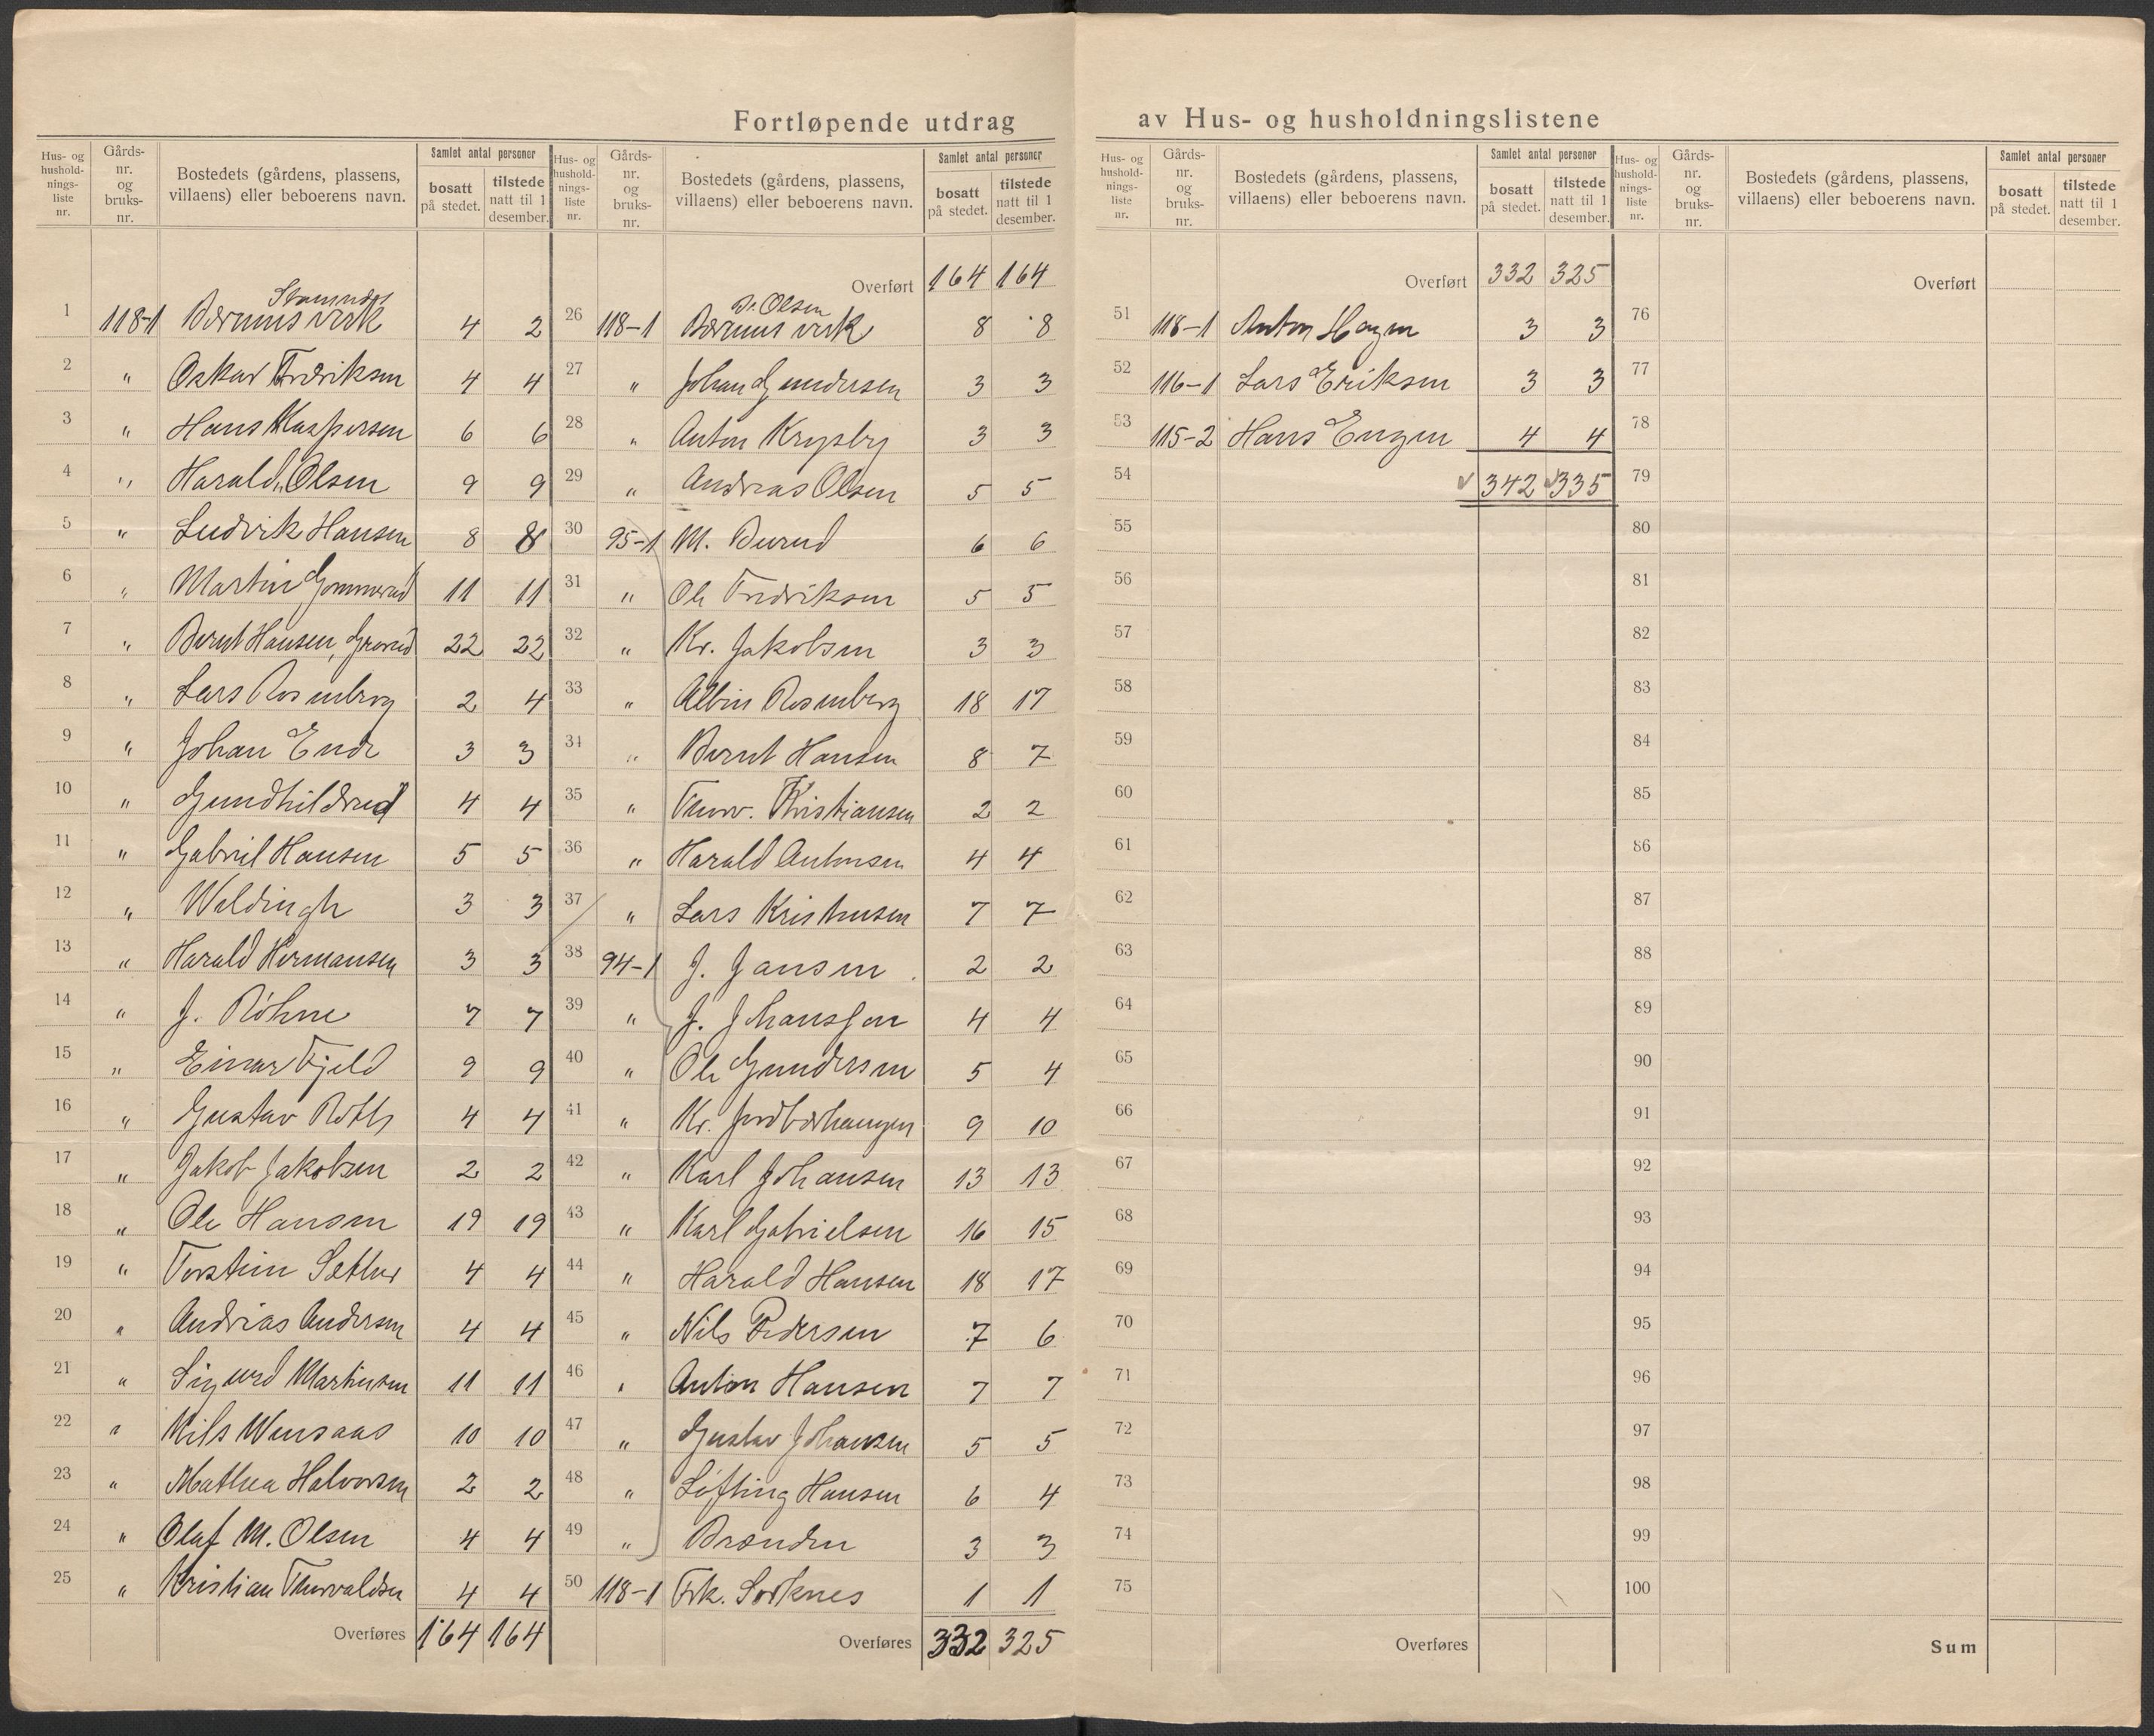 Fortløpende utdrag av Hus- og husholdningslistene
Hus- og hushold-nings-liste nr. | Gårds-nr. og bruks-nr. | Bostedets (gårdens, plassens, villaens) eller beboerens navn. | Samlet antal personer | bosatt på stedet. | tilstede natt til 1 desember.
1 118-1 Bærums verk 4 2
2 " Oskar Fredriksen 4 4
3 " Hans Kaspersen 6 6
4 " Harald Olsen 9 9
5 " Ludvik Hansen 8 8
6 " Martin Gommerud 11 11
7 " Bernt Hansen, 22 22
8 " Lars Rosenberg 2 4
9 " Johan Ende 3 3
10 " Gundhildrud 4 4
11 " Gabriel Hansen 5 5
12 " Weldingh 3 3
13 " Harald Hermansen 3 3
14 " J. Röhne 7 7
15 " Einar Fjeld 9 9
16 " Gustav 4 4
17 " Jakob Jakobsen 2 2
18 " Ole Hansen 19 19
19 " Torstein Sether 4 4
20 " Andreas Andersen 4 4
21 " Sigurd Martinsen 11 11
22 " Nils Wensaas 10 10
23 " Mathea Halvorsen 2 2
24 " Olaf M. Olsen 4 4
25 " Kristian Thorvaldsen 4 4
Overføres 164 164
Hus- og hushold-nings-liste nr. | Gårds-nr. og bruks-nr. | Bostedets (gårdens, plassens, villaens) eller beboerens navn. | Samlet antal personer | bosatt på stedet. | tilstede natt til 1 desember.
Overført 164 164
Olsen
26 118-1 Bærums verk 8 8
27 " Johan Gundersen 3 3
28 " Anton Krysby 3 3
29 " Andreas Olsen 5 5
30 95-1 M. Burud 6 6
31 " Ole Fredriksen 5 5
32 " Kr. Jakobsen 3 3
33 " Albin Rosenberg 18 17
34 " Bernt Hansen 8 7
35 " Thorv. Kristiansen 2 2
36 " Harald Antonsen 4 4
37 " Lars Kristensen 7 7
38 94-1 J. Jansen 2 2
39 " J. Johansson 4 4
40 " Ole Gundersen 5 4
41 " Kr. Jordbærhaugen 9 10
42 " Karl Johansen 13 13
43 " Karl Gabrielsen 16 15
44 " Harald Hansen 18 17
45 " Nils Pedersen 7 6
46 " Anton Hansen 7 7
47 " Gustav Johansen 5 5
48 " Löfting Hansen 6 4
49 " Brenden 3 3
50 118-1 Frk. Sorknes 1 1
Overføres 332 325
Hus- og hushold-nings-liste nr. | Gårds-nr. og bruks-nr. | Bostedets (gårdens, plassens, villaens) eller beboerens navn. | Samlet antal personer | bosatt på stedet. | tilstede natt til 1 desember.
Overført 332 325
51 118-1 Anton Hagen 3 3
52 116-1 Lars Eriksen 3 3
53 115-2 Hans Engen 4 4
54 342 335
55
56
57
58
59
60
61
62
63
64
65
66
67
68
69
70
71
72
73
74
75
Overføres
Hus- og hushold-nings-liste nr. | Gårds-nr. og bruks-nr. | Bostedets (gårdens, plassens, villaens) eller beboerens navn. | Samlet antal personer | bosatt på stedet. | tilstede natt til 1 desember.
Overført
76
77
78
79
80
81
82
83
84
85
86
87
88
89
90
91
92
93
94
95
96
97
98
99
100
Sum